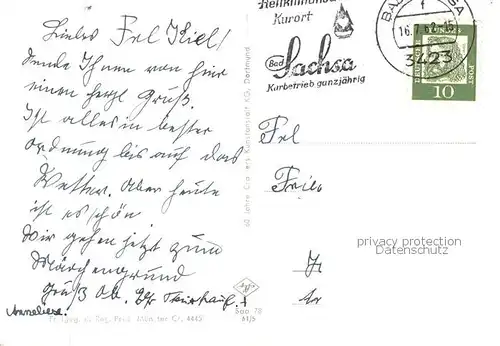 Liebes Frl Kiel!
sende Ihnen von hier
einen herzl Gruß.
Ist alles in bester
Ordnung bis auf das
Wetter. Aber heute
ist es schön
Wir gehen jetzt zum
Märchengrund
Gruß
Anneliese.
Heilklimatischer
Kurort
Bad
Sachsa
Kurbetrieb ganzjährig
BAD SACHSA
f
16.7.62-15
3423
DEUTSCHE
POST
10
60 Jahre Cramers Kunstanstalt KG, Dortmund
Frl
privacy protection
Datenschutz
Cr
Sao 78
61/5